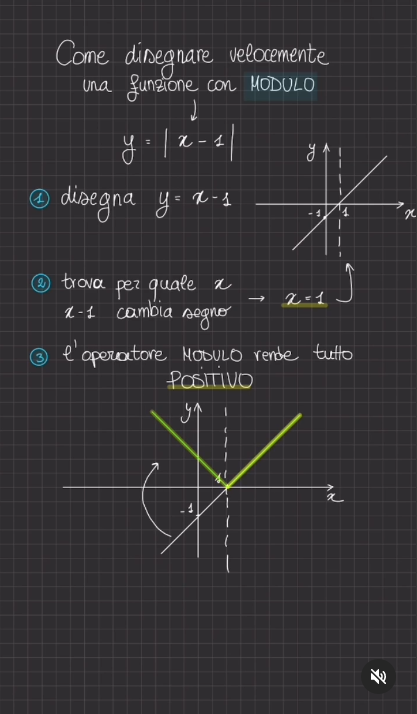 Come disegnare velocemente
una funzione con MODULO
y = | x - 1 |
① disegna y = x - 1
y
-1
1
x
② trova per quale x
x - 1 cambia segno → x = 1
③ l'operatore MODULO rende tutto
POSITIVO
y
1
x
-1